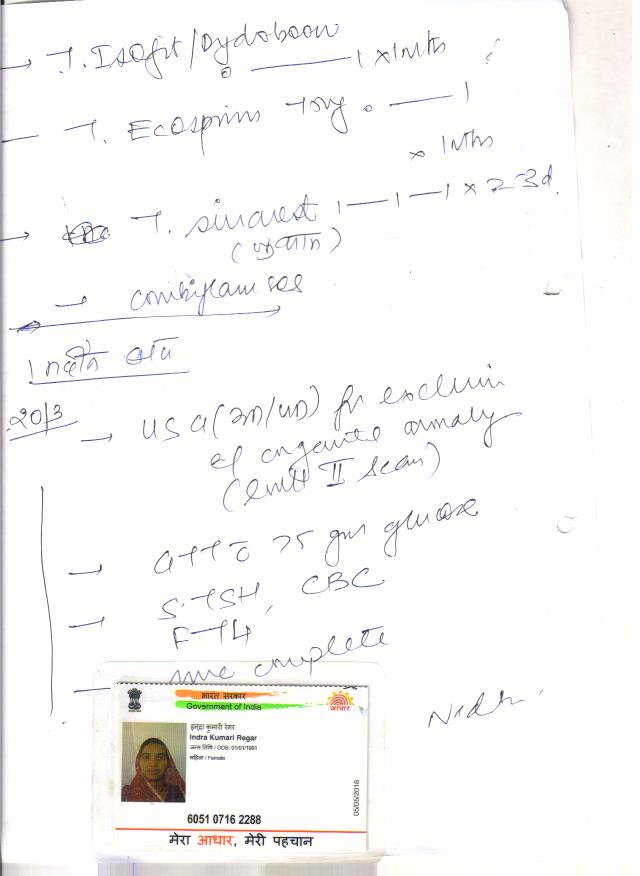 → T. Isofit/Dydoboon
0 — 1 x 1mths
— T. Ecosprin 0 — 1
x 1mths
→ T. sinarest 1—1—1 x 2-3d.
— combiflam sos
20/3
→ USG (3D/4D) for exclusion
of congenital anomaly
(level II scan)
→ GTT c 75 gm glucose
→ S.TSH, CBC
F-T4
urine complete
भारत सरकार
Government of India
इन्द्रा कुमारी रेगर
Indra Kumari Regar
जन्म तिथि / DOB: 01/01/1991
महिला / Female
आधार
05/05/2016
6051 0716 2288
मेरा आधार, मेरी पहचान